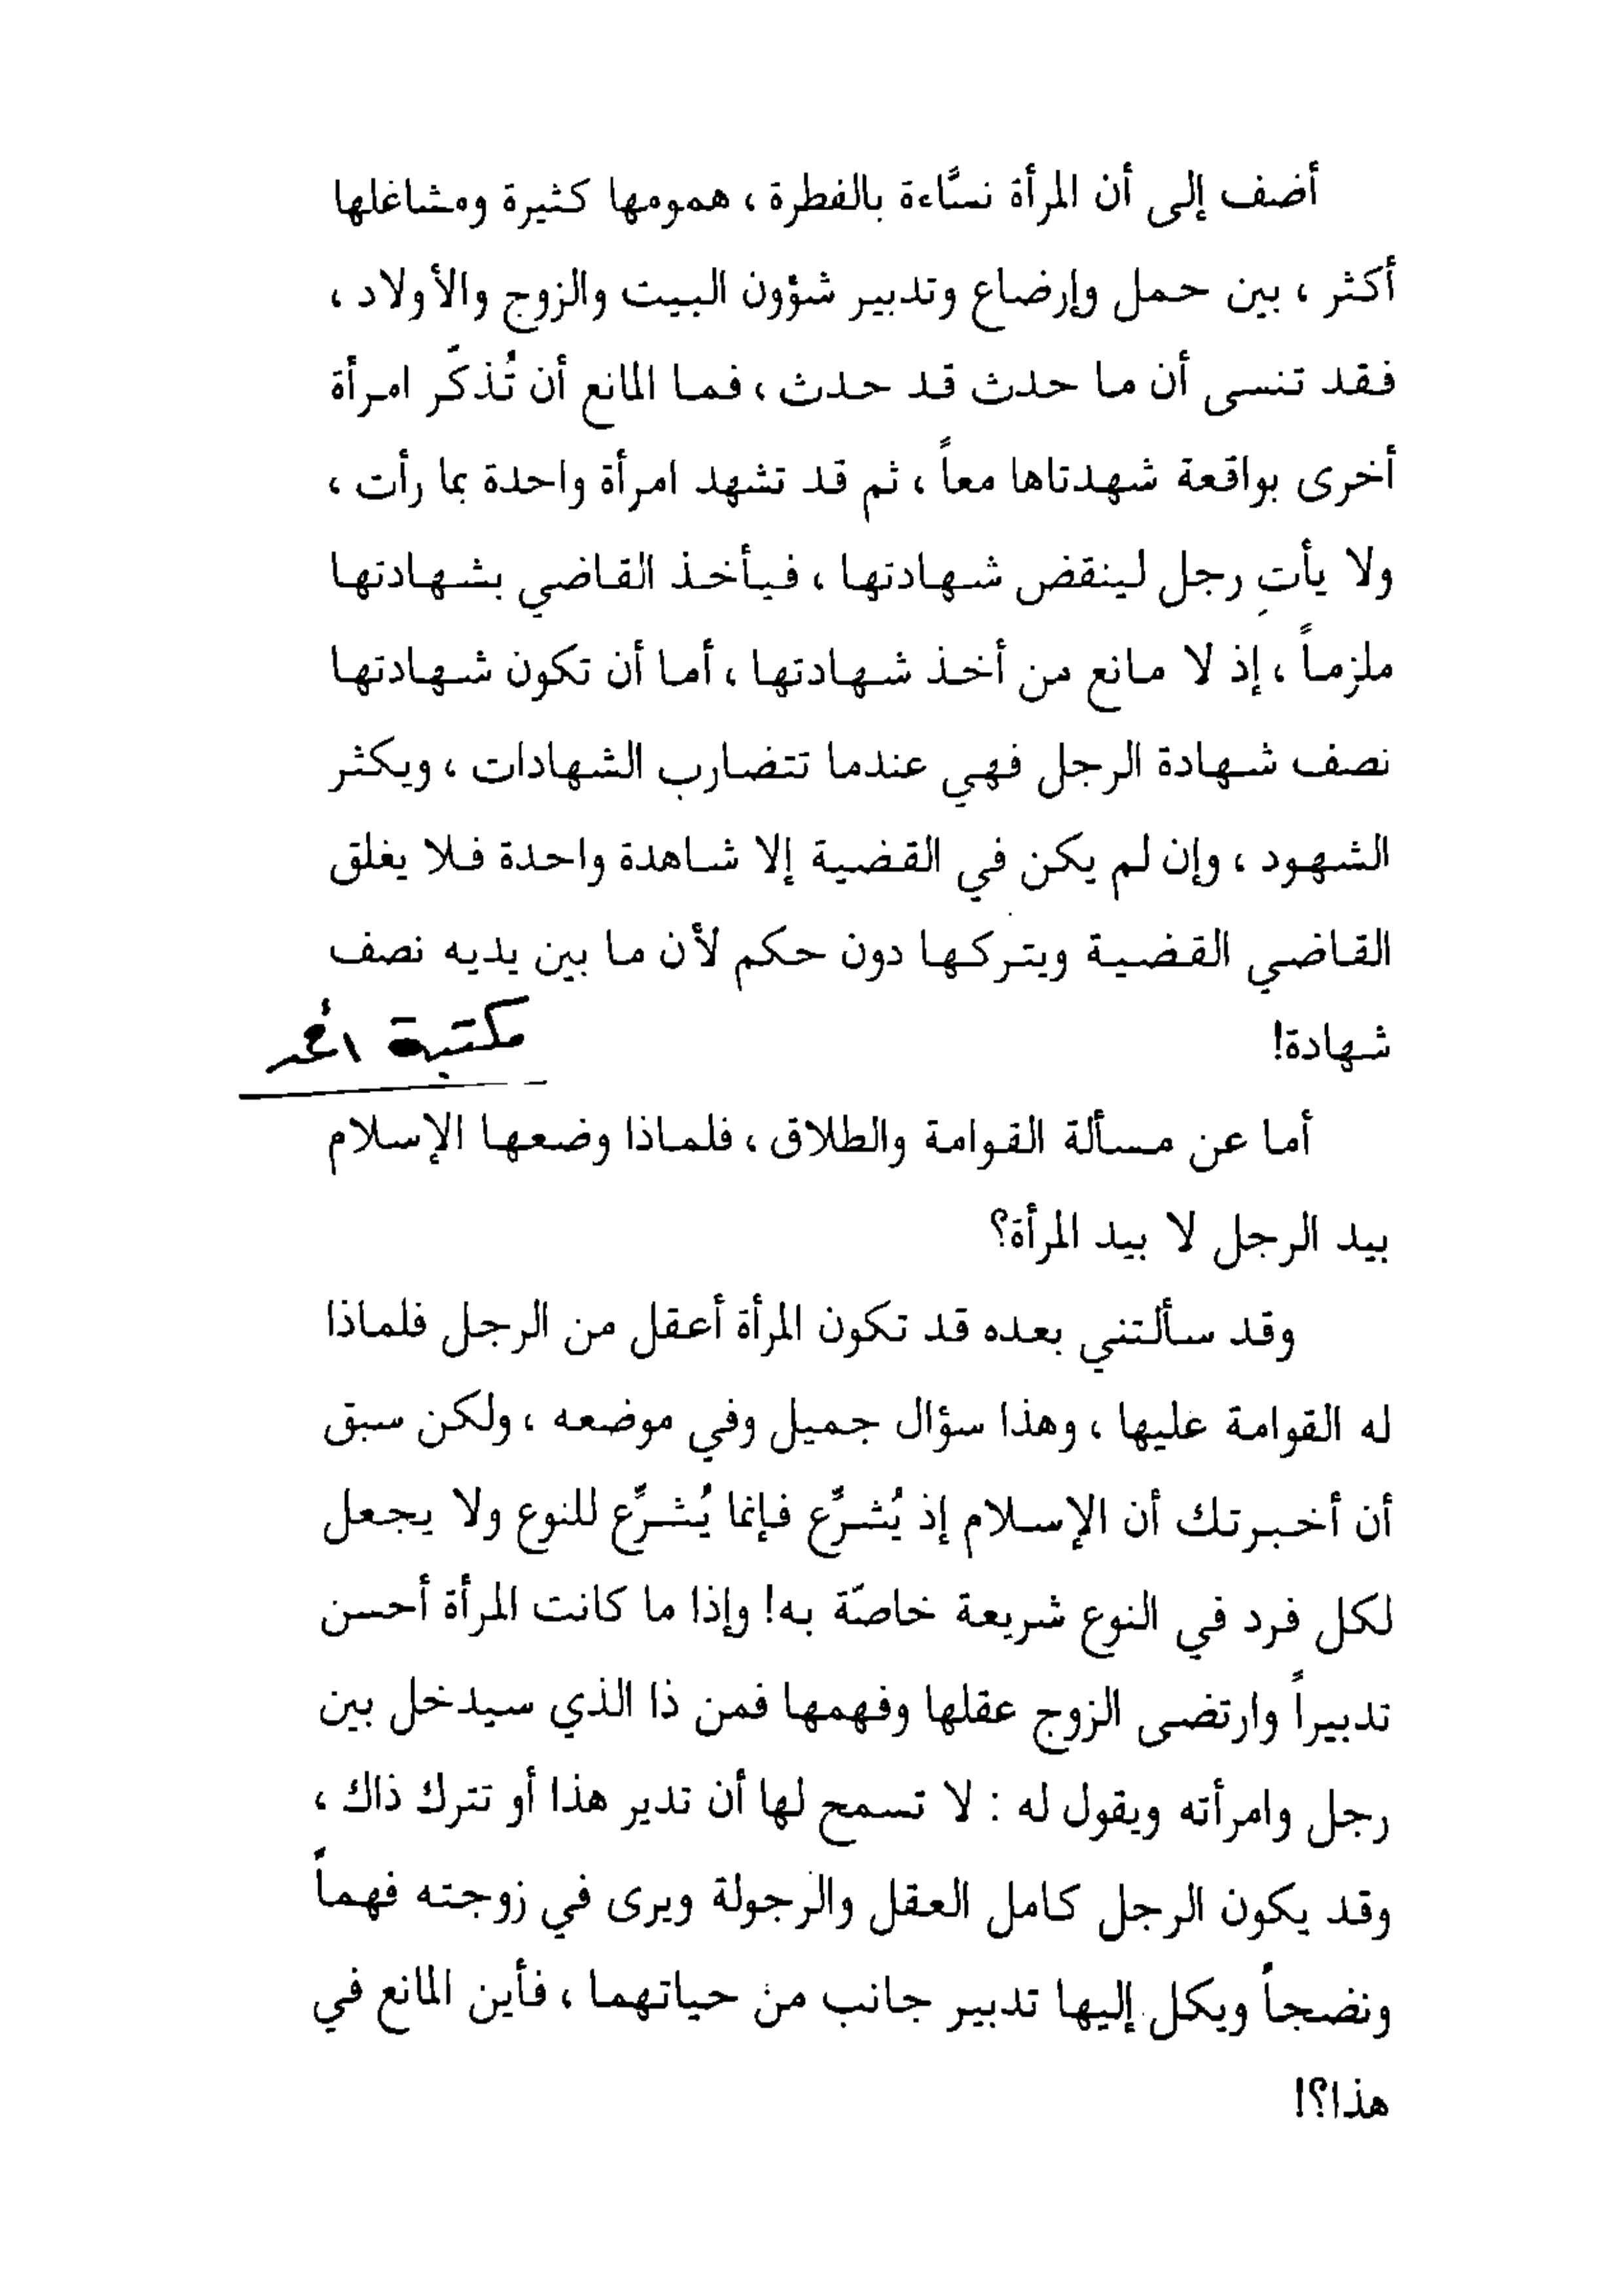 أضف إلى أن المرأة نسّاءة بالفطرة ، همومها كثيرة ومشاغلها
أكثر ، بين حمل وإرضاع وتدبير شؤون البيت والزوج والأولاد ،
فقد تنسى أن ما حدث قد حدث ، فما المانع أن تُذكّر امرأة
أخرى بواقعة شهدتاها معاً ، ثم قد تشهد امرأة واحدة بما رأت ،
ولا يأتِ رجل لينقض شهادتها ، فيأخذ القاضي بشهادتها
ملزماً ، إذ لا مانع من أخذ شهادتها ، أما أن تكون شهادتها
نصف شهادة الرجل فهي عندما تتضارب الشهادات ، ويكثر
الشهود ، وإن لم يكن في القضية إلا شاهدة واحدة فلا يغلق
القاضي القضية ويتركها دون حكم لأن ما بين يديه نصف
شهادة!
مكتبة
أما عن مسألة القوامة والطلاق ، فلماذا وضعها الإسلام
بيد الرجل لا بيد المرأة؟
وقد سألتني بعده قد تكون المرأة أعقل من الرجل فلماذا
له القوامة عليها ، وهذا سؤال جميل وفي موضعه ، ولكن سبق
أن أخبرتك أن الإسلام إذ يُشرِّع فإنما يُشرِّع للنوع ولا يجعل
لكل فرد في النوع شريعة خاصّة به! وإذا ما كانت المرأة أحسن
تدبيراً وارتضى الزوج عقلها وفهمها فمن ذا الذي سيدخل بين
رجل وامرأته ويقول له : لا تسمح لها أن تدير هذا أو تترك ذاك ،
وقد يكون الرجل كامل العقل والرجولة ويرى في زوجته فهماً
ونضجاً ويكل إليها تدبير جانب من حياتهما ، فأين المانع في
هذا؟!